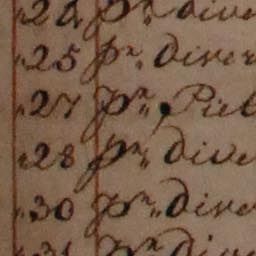 „ 22 pr„ dive
„ 25 pr„ diver
„ 27 pr„ Piet
„ 28 pr„ dive
„ 30 pr„ dive
„ 31 pr„ div